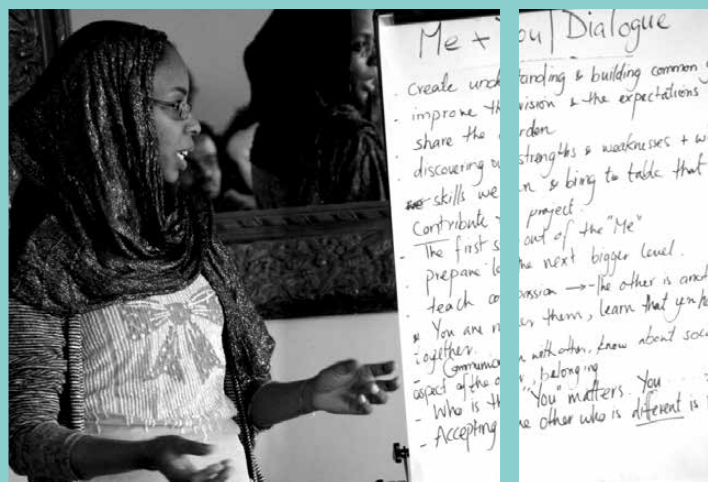 Me + You / Dialogue
- create und tanding & building common
- improve th vision & the expectations
share the rden
- discovering strengths & weaknesses +
skills we n & bring to table that
Contribute project.
- The first s out of the "Me"
prepare he next bigger level.
teach co ission → - The other is
You are n them, learn that
together.
- Communica n with other, know about
aspect of the o belonging
- Who is th "You" matters. You
- Accepting he other who is different is